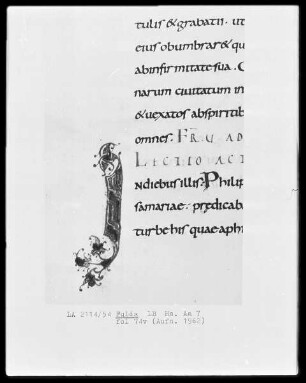 tulis & grabatti. ut
eius obumbrar& qu
abinfirmitate sua. C
narum ciuitatum in
& uexatos abspiritib
omnes. FR U AD
LECTIO ACT
INdiebus illis. Philip
samariae. predicaba
turbe his quae aphi
LA 2114/54 Fulda LB Hs. Aa 7
fol 74v (Aufn. 1962)